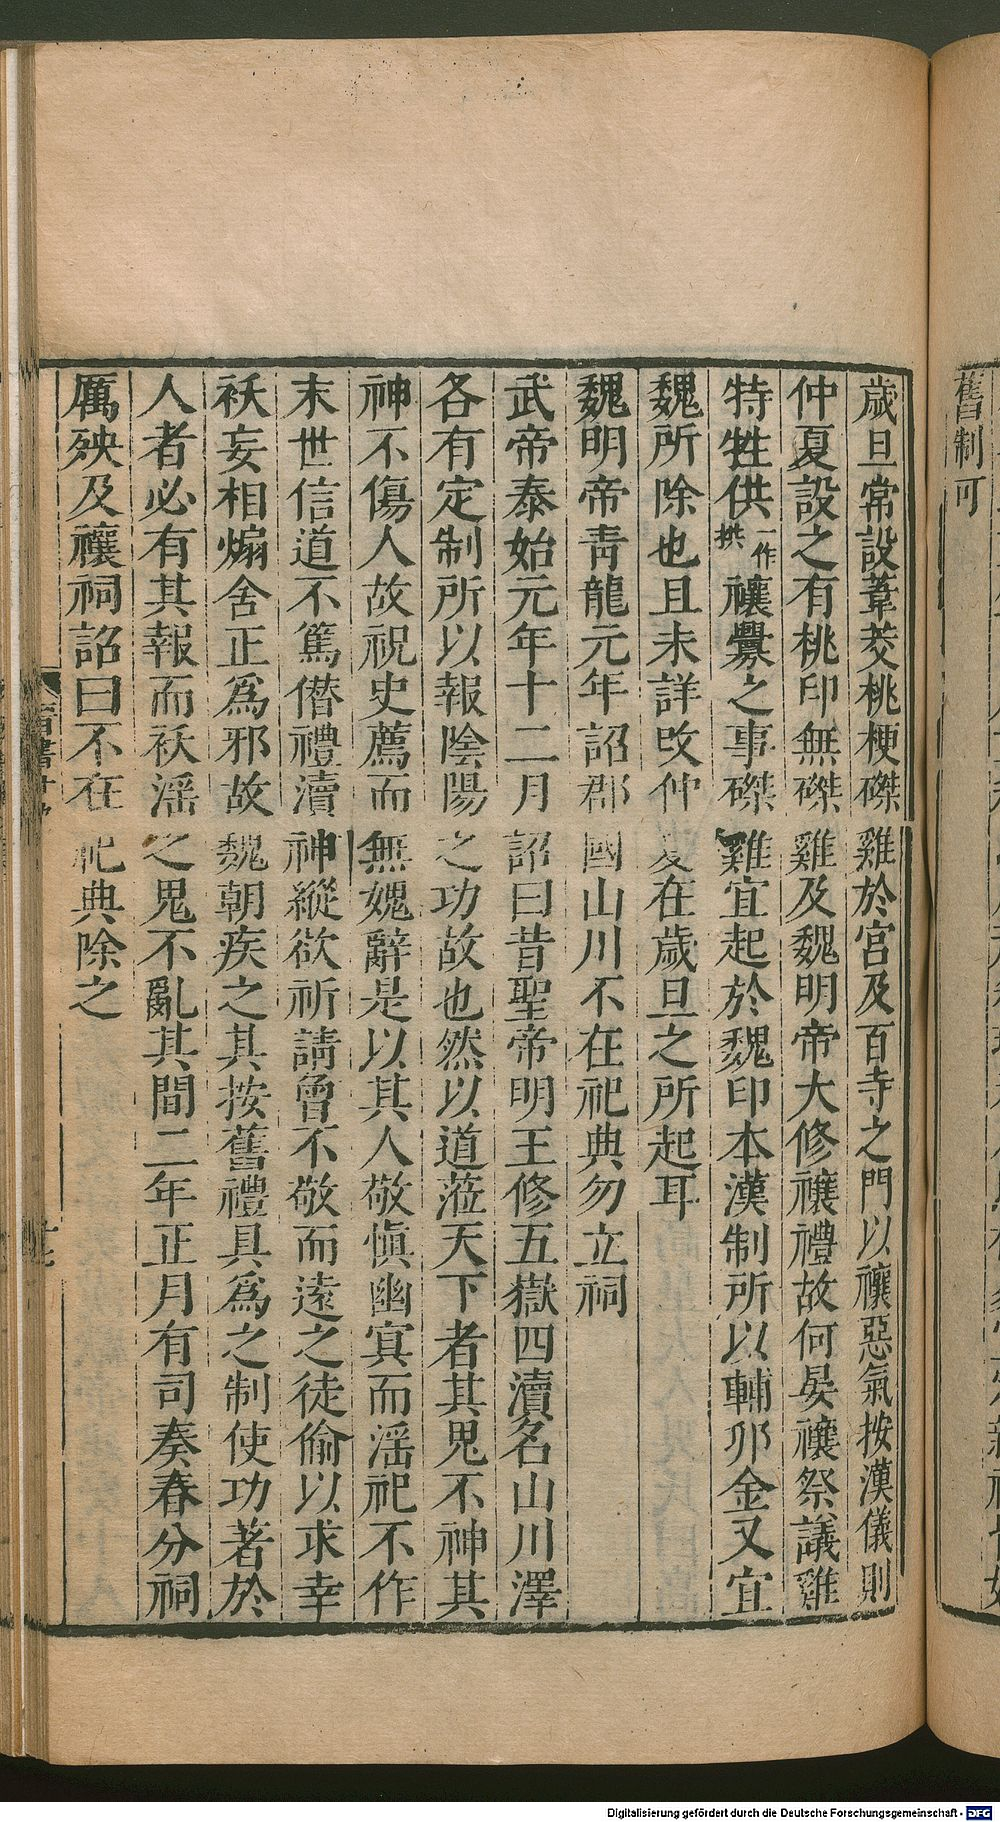 舊制可
歲旦常設葦茭桃梗磔雞於宮及百寺之門以禳惡氣按漢儀則
仲夏設之有桃印無磔雞及魏明帝大修禳禮故何晏禳祭議雞
特牲供一作拱禳釁之事磔雞宜起於魏印本漢制所以輔卯金又宜
魏所除也且未詳改仲夏在歲旦之所起耳
魏明帝靑龍元年詔郡國山川不在祀典勿立祠
武帝泰始元年十二月詔曰昔聖帝明王修五嶽四瀆名山川澤
各有定制所以報陰陽之功故也然以道蒞天下者其鬼不神其
神不傷人故祝史薦而無媿辭是以其人敬愼幽冥而淫祀不作
末世信道不篤僭禮瀆神縱欲祈請曾不敬而遠之徒偷以求幸
祅妄相煽舍正爲邪故魏朝疾之其按舊禮具爲之制使功著於
人者必有其報而祅淫之鬼不亂其間二年正月有司奏春分祠
厲殃及禳祠詔曰不在祀典除之
晉書十九
十七
Digitalisierung gefördert durch die Deutsche Forschungsgemeinschaft - DFG